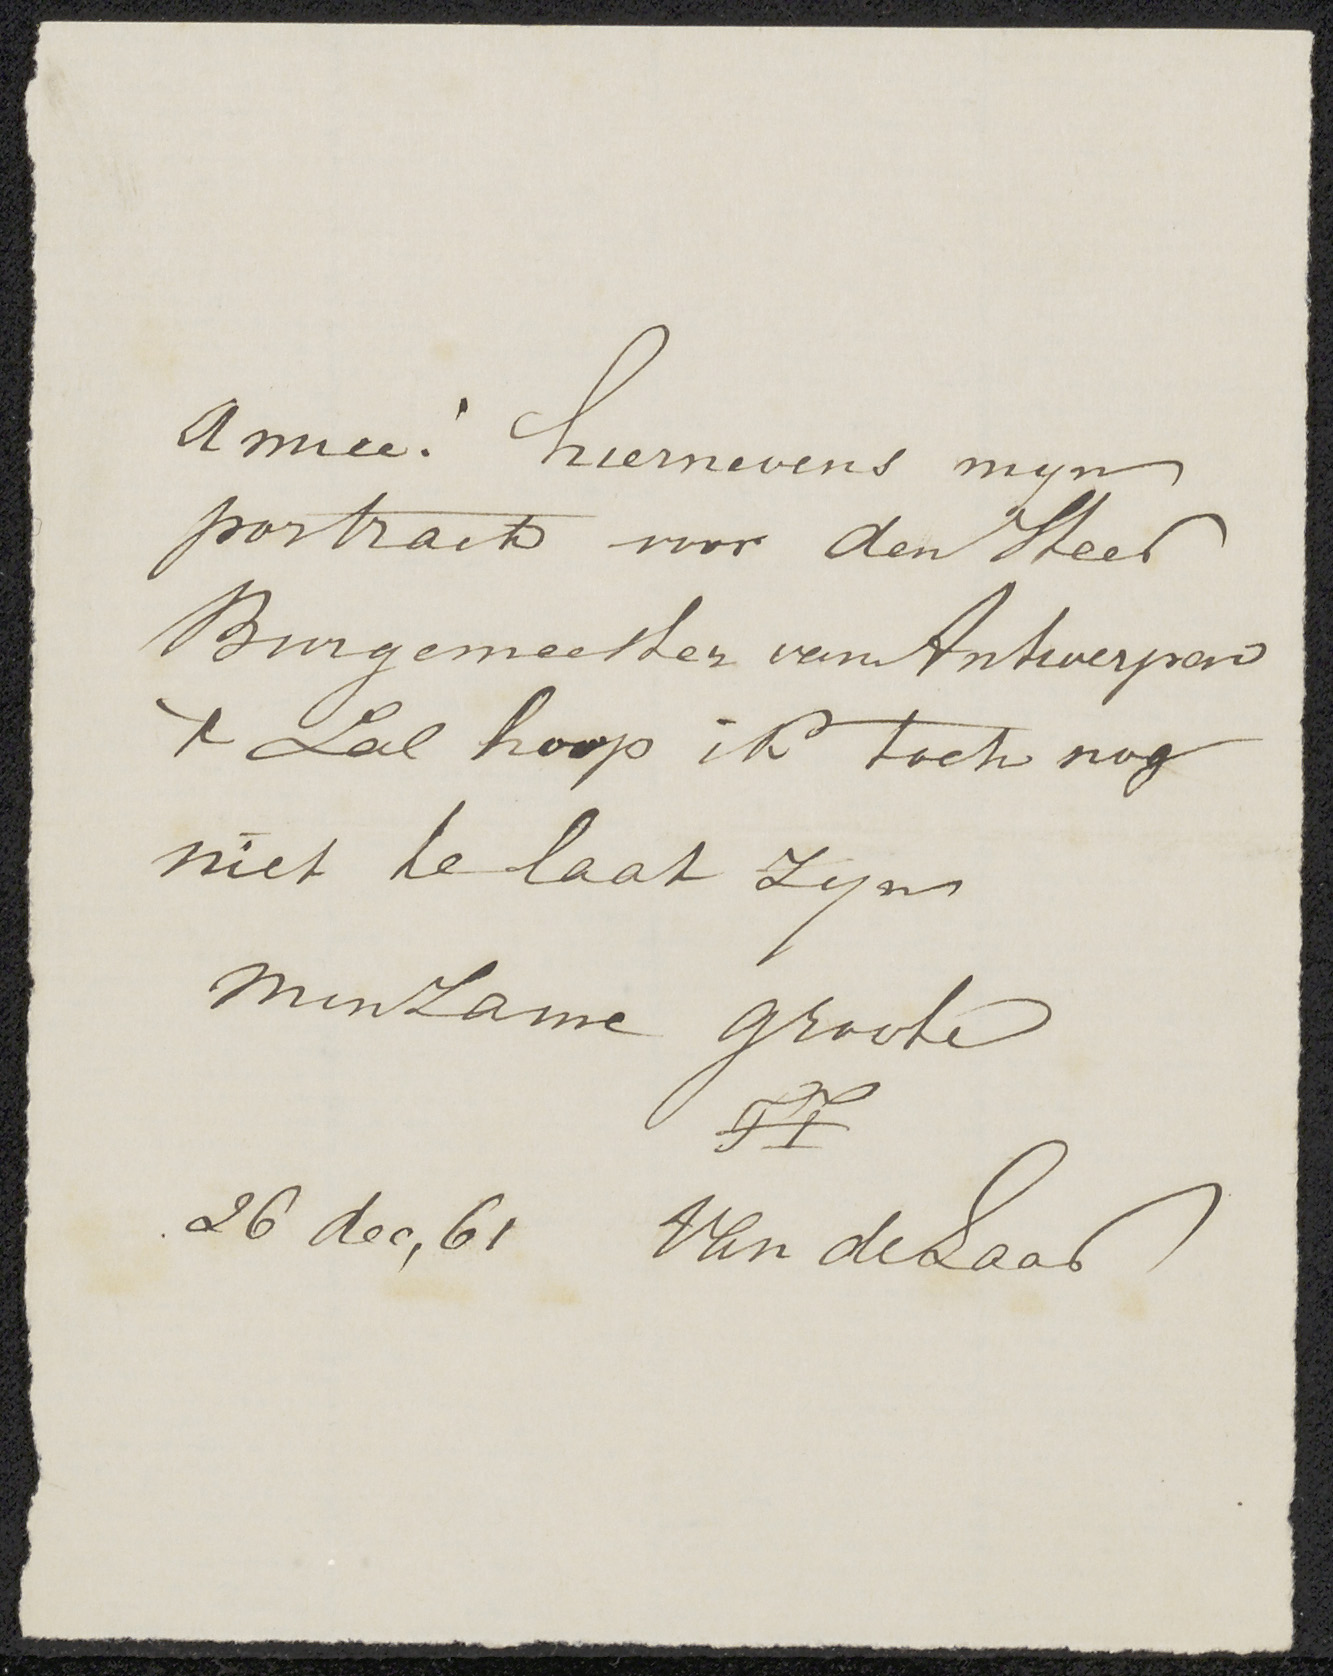 Amice! hiernevens myn
portract voor den Heer
Burgemeester van Antwerpen
't Zal hoop ik toch nog
niet te laat zyn
Minzame groete
TT
26 dec, 61 Van de Laar